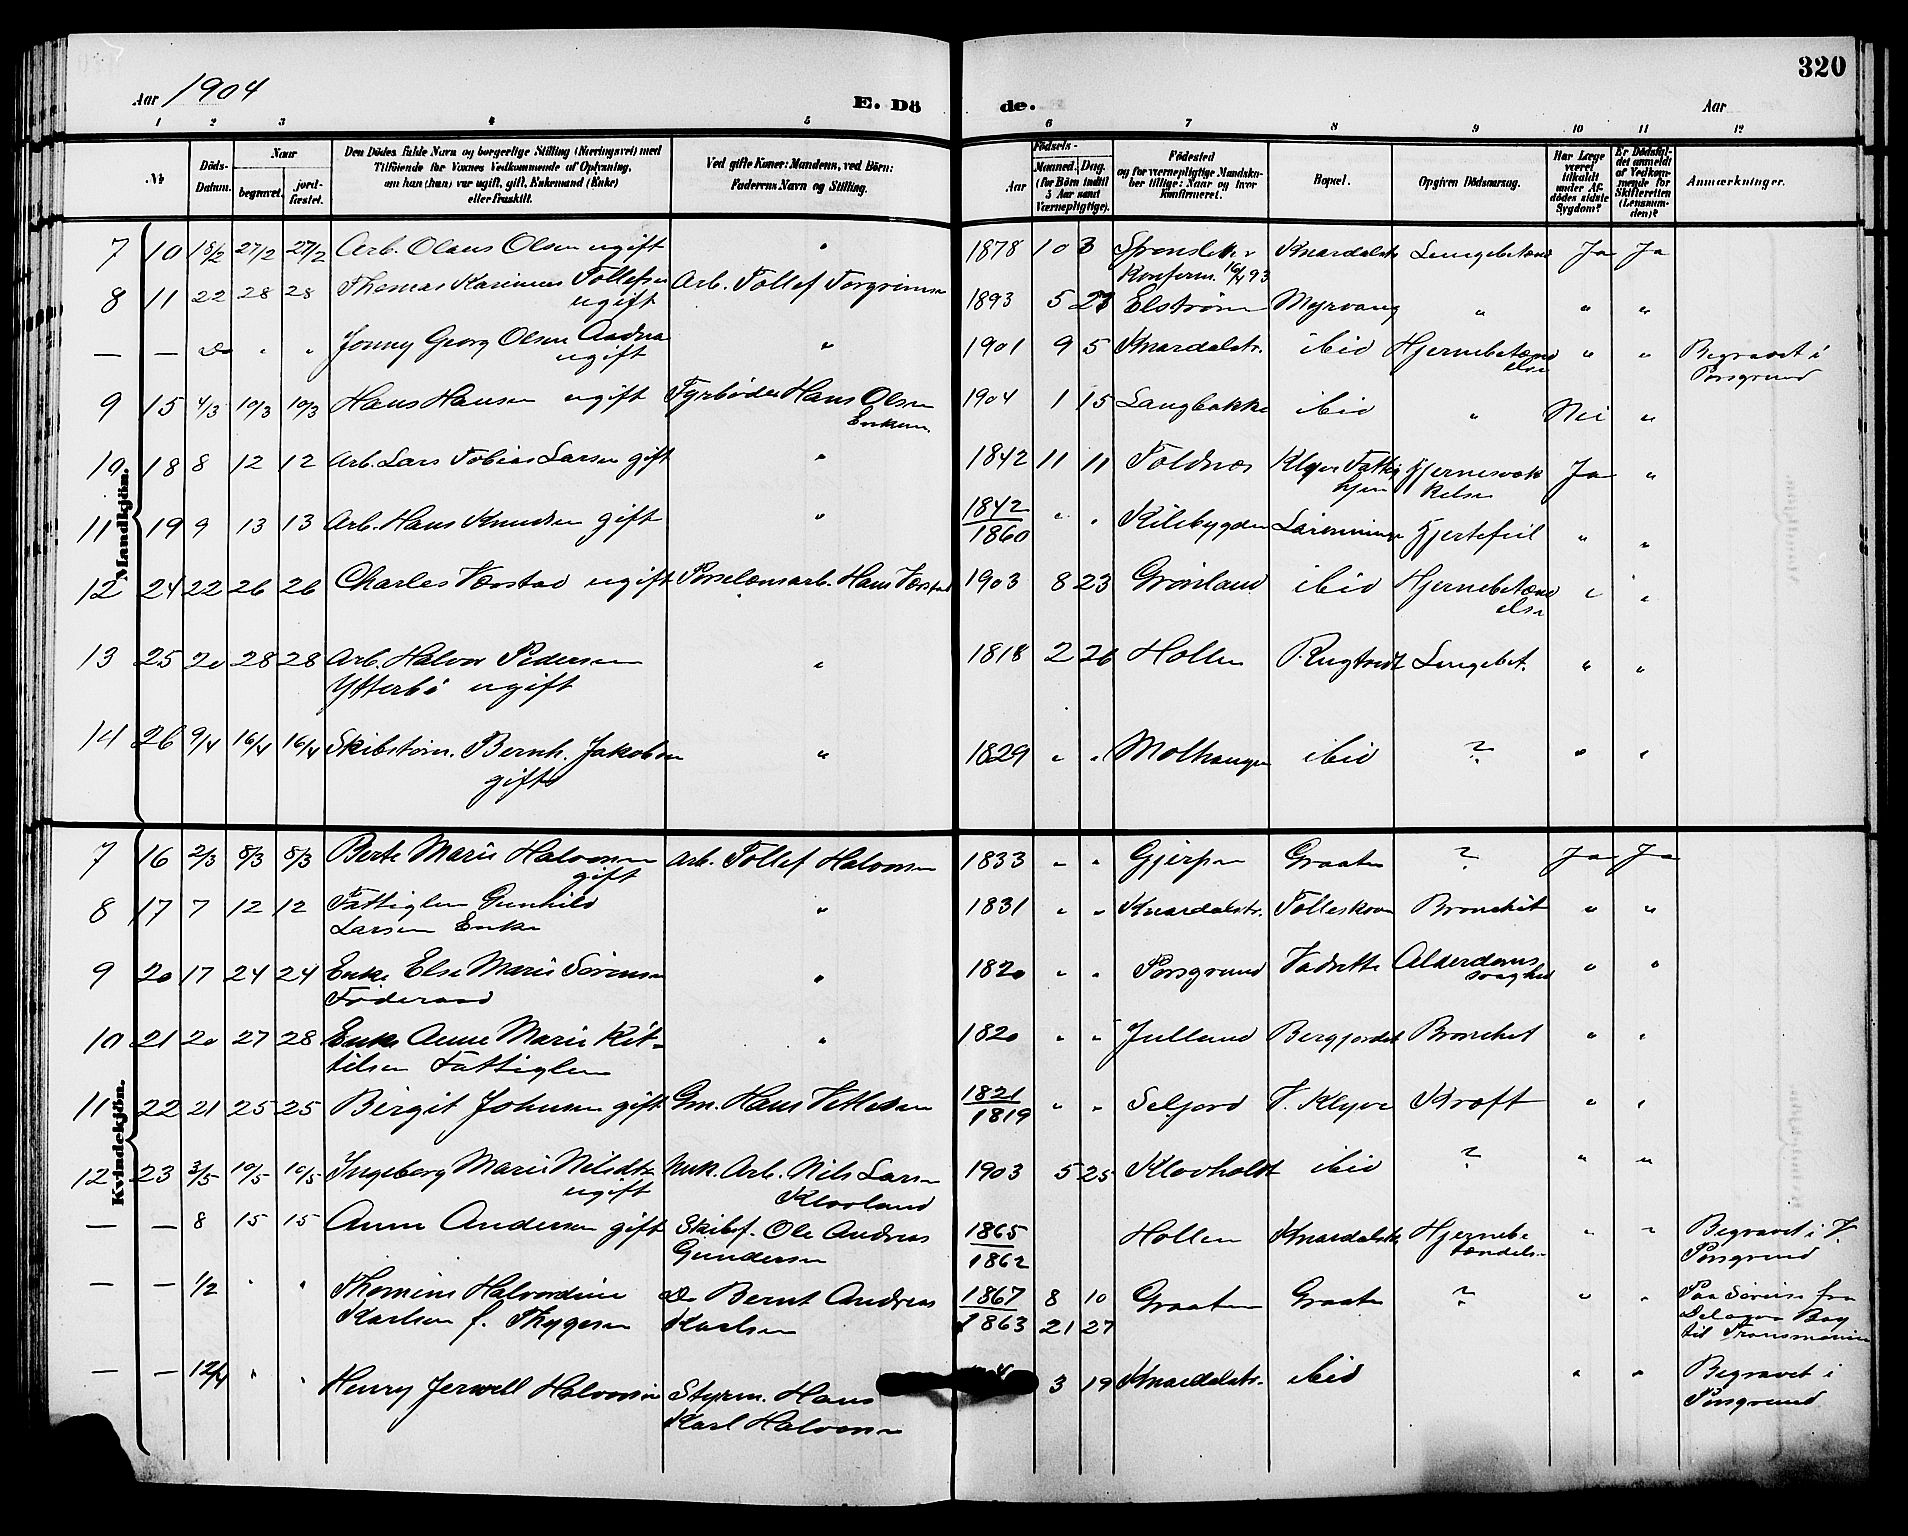 320
Aar 1904
E. Dö
de.
Aar
1 2 3 4 5 6 7 8 9 10 11 12
No
Döds-Datum.
Naar
begravet.
jord-fæstet.
Den Dödes fulde Navn og borgerlige Stilling (Næringsvei) med
Tilföiende for Voxnes Vedkommende af Oplysning,
om han (hun) var ugift, gift, Enkemand (Enke)
eller fraskilt.
Ved gifte Koner: Mandens, ved Börn:
Faderens Navn og Stilling.
Födsels-
Aar
Maaned. Dag.
(for Börn indtil
5 Aar samt
Værnepligtige).
Födested
og for værnepligtige Mandska-
ber tillige: Naar og hvor
konfirmeret.
Bopæl.
Opgiven Dödsaarsag.
Har Læge
været
tilkaldt
under Af-
dödes sidste
Sygdom?
Er Dödsfal-
det anmeldt
af Vedkom-
mende for
Skifteretten
(Lensman-
den)?
Anmærkninger.
Mandkjön.
7 10 18/2 27/2 27/2 Arb. Olaus Olsen ugift " 1878 10 3 Knardalstr. Lungebetænd Ja Ja
Konferm. 93
8 11 22 28 28 Thomas Karinius Tollefsen Arb. Tollef Torgrimsen 1893 5 23 Elstrøm Myrvang " " "
ugift
— — Do " " Jonny Georg Olsen Aadna " 1901 9 5 Knardalstr. ibid Hjernebetænd " " Begravet i
ugift else Porsgrund
9 15 4/3 10/3 10/3 Hans Hansen ugift Fyrbøder Hans Olsen 1904 1 15 Langbakke ibid " Nei "
10 18 8 12 12 Arb. Lars Tobias Larsen gift " 1842 11 11 Toldnæs Klyve Fattig Hjernesvæk Ja "
hjem kelse
11 19 9 13 13 Arb. Hans Knudsen gift " 1842 " " Kilebygden Hjertefeil " "
1860
12 24 22 26 26 Charles Værstad ugift Porselænsarb. Hans Værstad 1903 8 23 Grønland ibid Hjernebetænd " "
else
13 25 20 28 28 Arb. Halvor Pedersen " 1818 2 26 Hollen Lungebet. " "
Ytterbø ugift
14 26 9/4 16/4 16/4 Skibstøm. Bernh. Jakobsen " 1829 " " Molhaugen ibid ? " "
gift
Kvindekjön.
7 16 2/3 8/3 8/3 Berte Marie Halvorsen Arb. Tollef Halvorsen 1833 " " Gjerpen Graaten ? Ja Ja
gift
8 17 7 12 12 Fattiglem Gunhild " 1831 " " Knardalstr. Folleskoven Bronchit " "
Larsen Enke
9 20 17 24 24 Enke Else Marie Sørensen " 1820 " " Porsgrund Vadrette Alderdoms " "
Føderaad svaghed
10 21 20 27 28 Enke Anne Marie Kit- " 1820 " " Jylland Bergjordet Bronchit " "
tilsen Fattiglem
11 22 21 25 25 Birgit Johnsen gift Gm. Hans Vetlesen 1821 " " Seljord V. Klyve Kræft " "
1819
12 23 3/5 10/5 10/5 Ingeborg Marie Nilsdtr. Arb. Nils Larsen 1903 5 25 Klovholdt ibid ? " "
ugift Klovland
— — 8 15 15 Anne Andersen gift Skibsf. Ole Andreas 1865 Hollen Knardalstr Hjernebe Begravet i V.
Gundersen 1862 tændelse Porsgrund
— — 1/2 " " Thomine Halvordine Do Bernt Andreas 1867 8 10 Graaten Graaten ? " " Paa Søreise fra
Karlsen f. Thygesen Karlsen 1863 21 27 Delagoa Bay
til
— — 12/4 " " Henry Jerwell Halvorsen Styrm. Hans 4 3 19 Knardalstr. ibid " " Begravet i
Karl Halvorsen Porsgrund